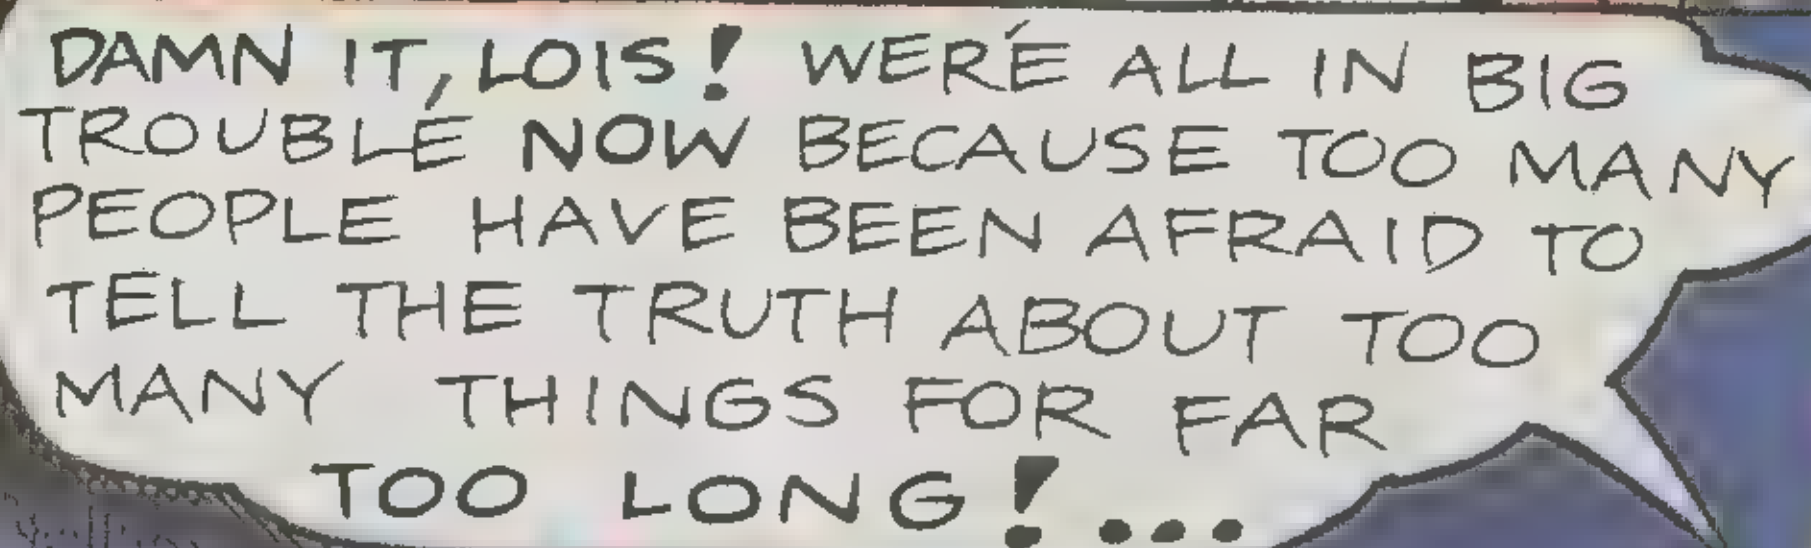 DAMN IT, LOIS! WE'RE ALL IN BIG
TROUBLE NOW BECAUSE TOO MANY
PEOPLE HAVE BEEN AFRAID TO
TELL THE TRUTH ABOUT TOO
MANY THINGS FOR FAR
TOO LONG!...